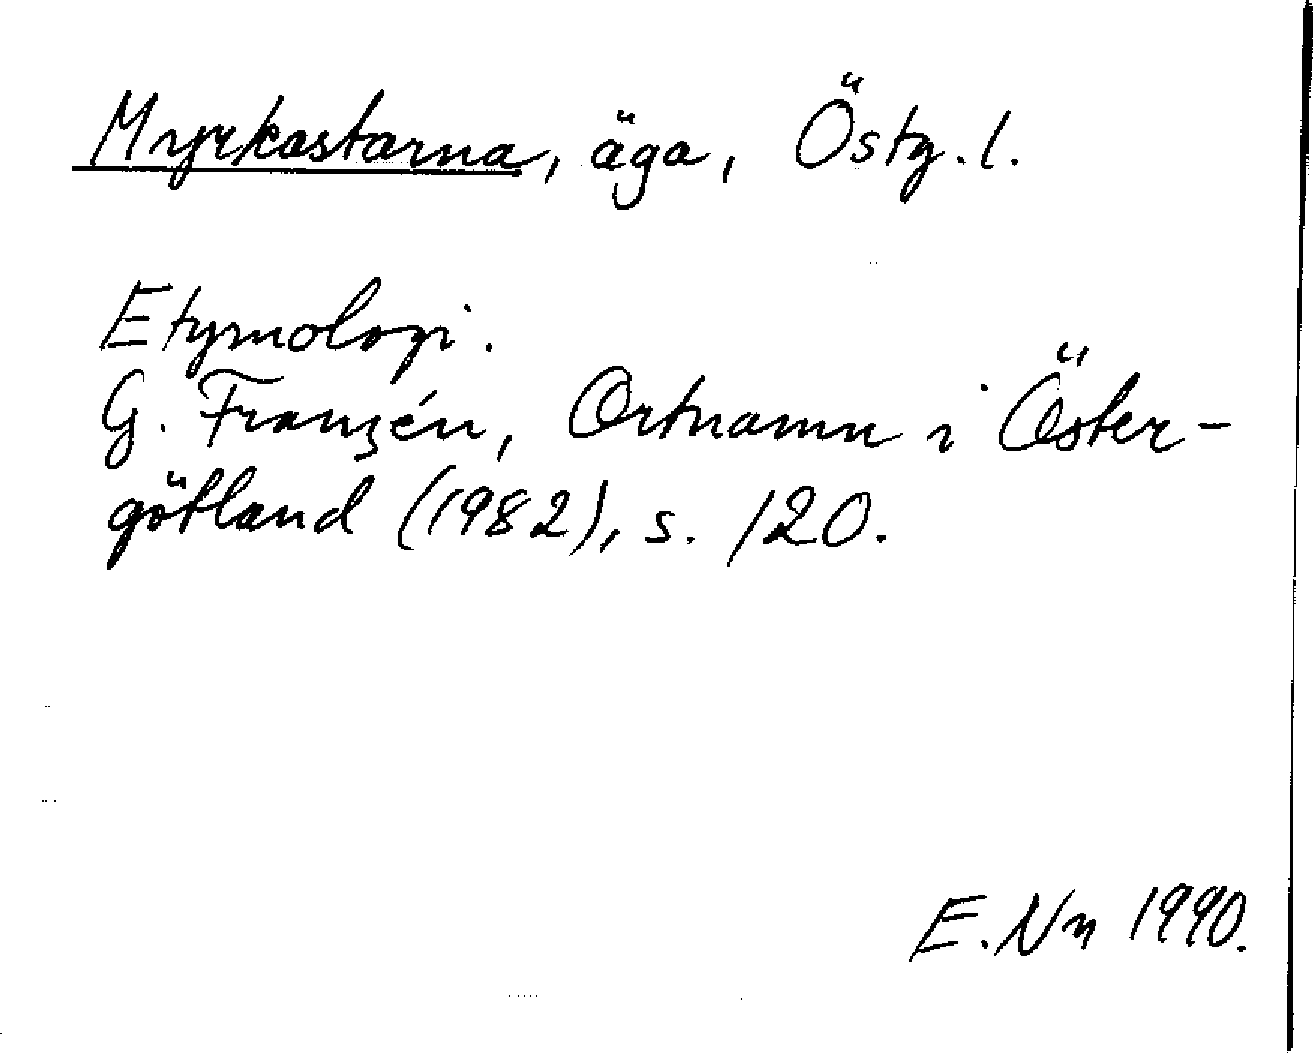 Myrkastarna, äga, Östg.l.
Etymologi.
G. Franzén, Ortnamn i Öster-
götland (1982), s. 120.
E. Nn 1990.